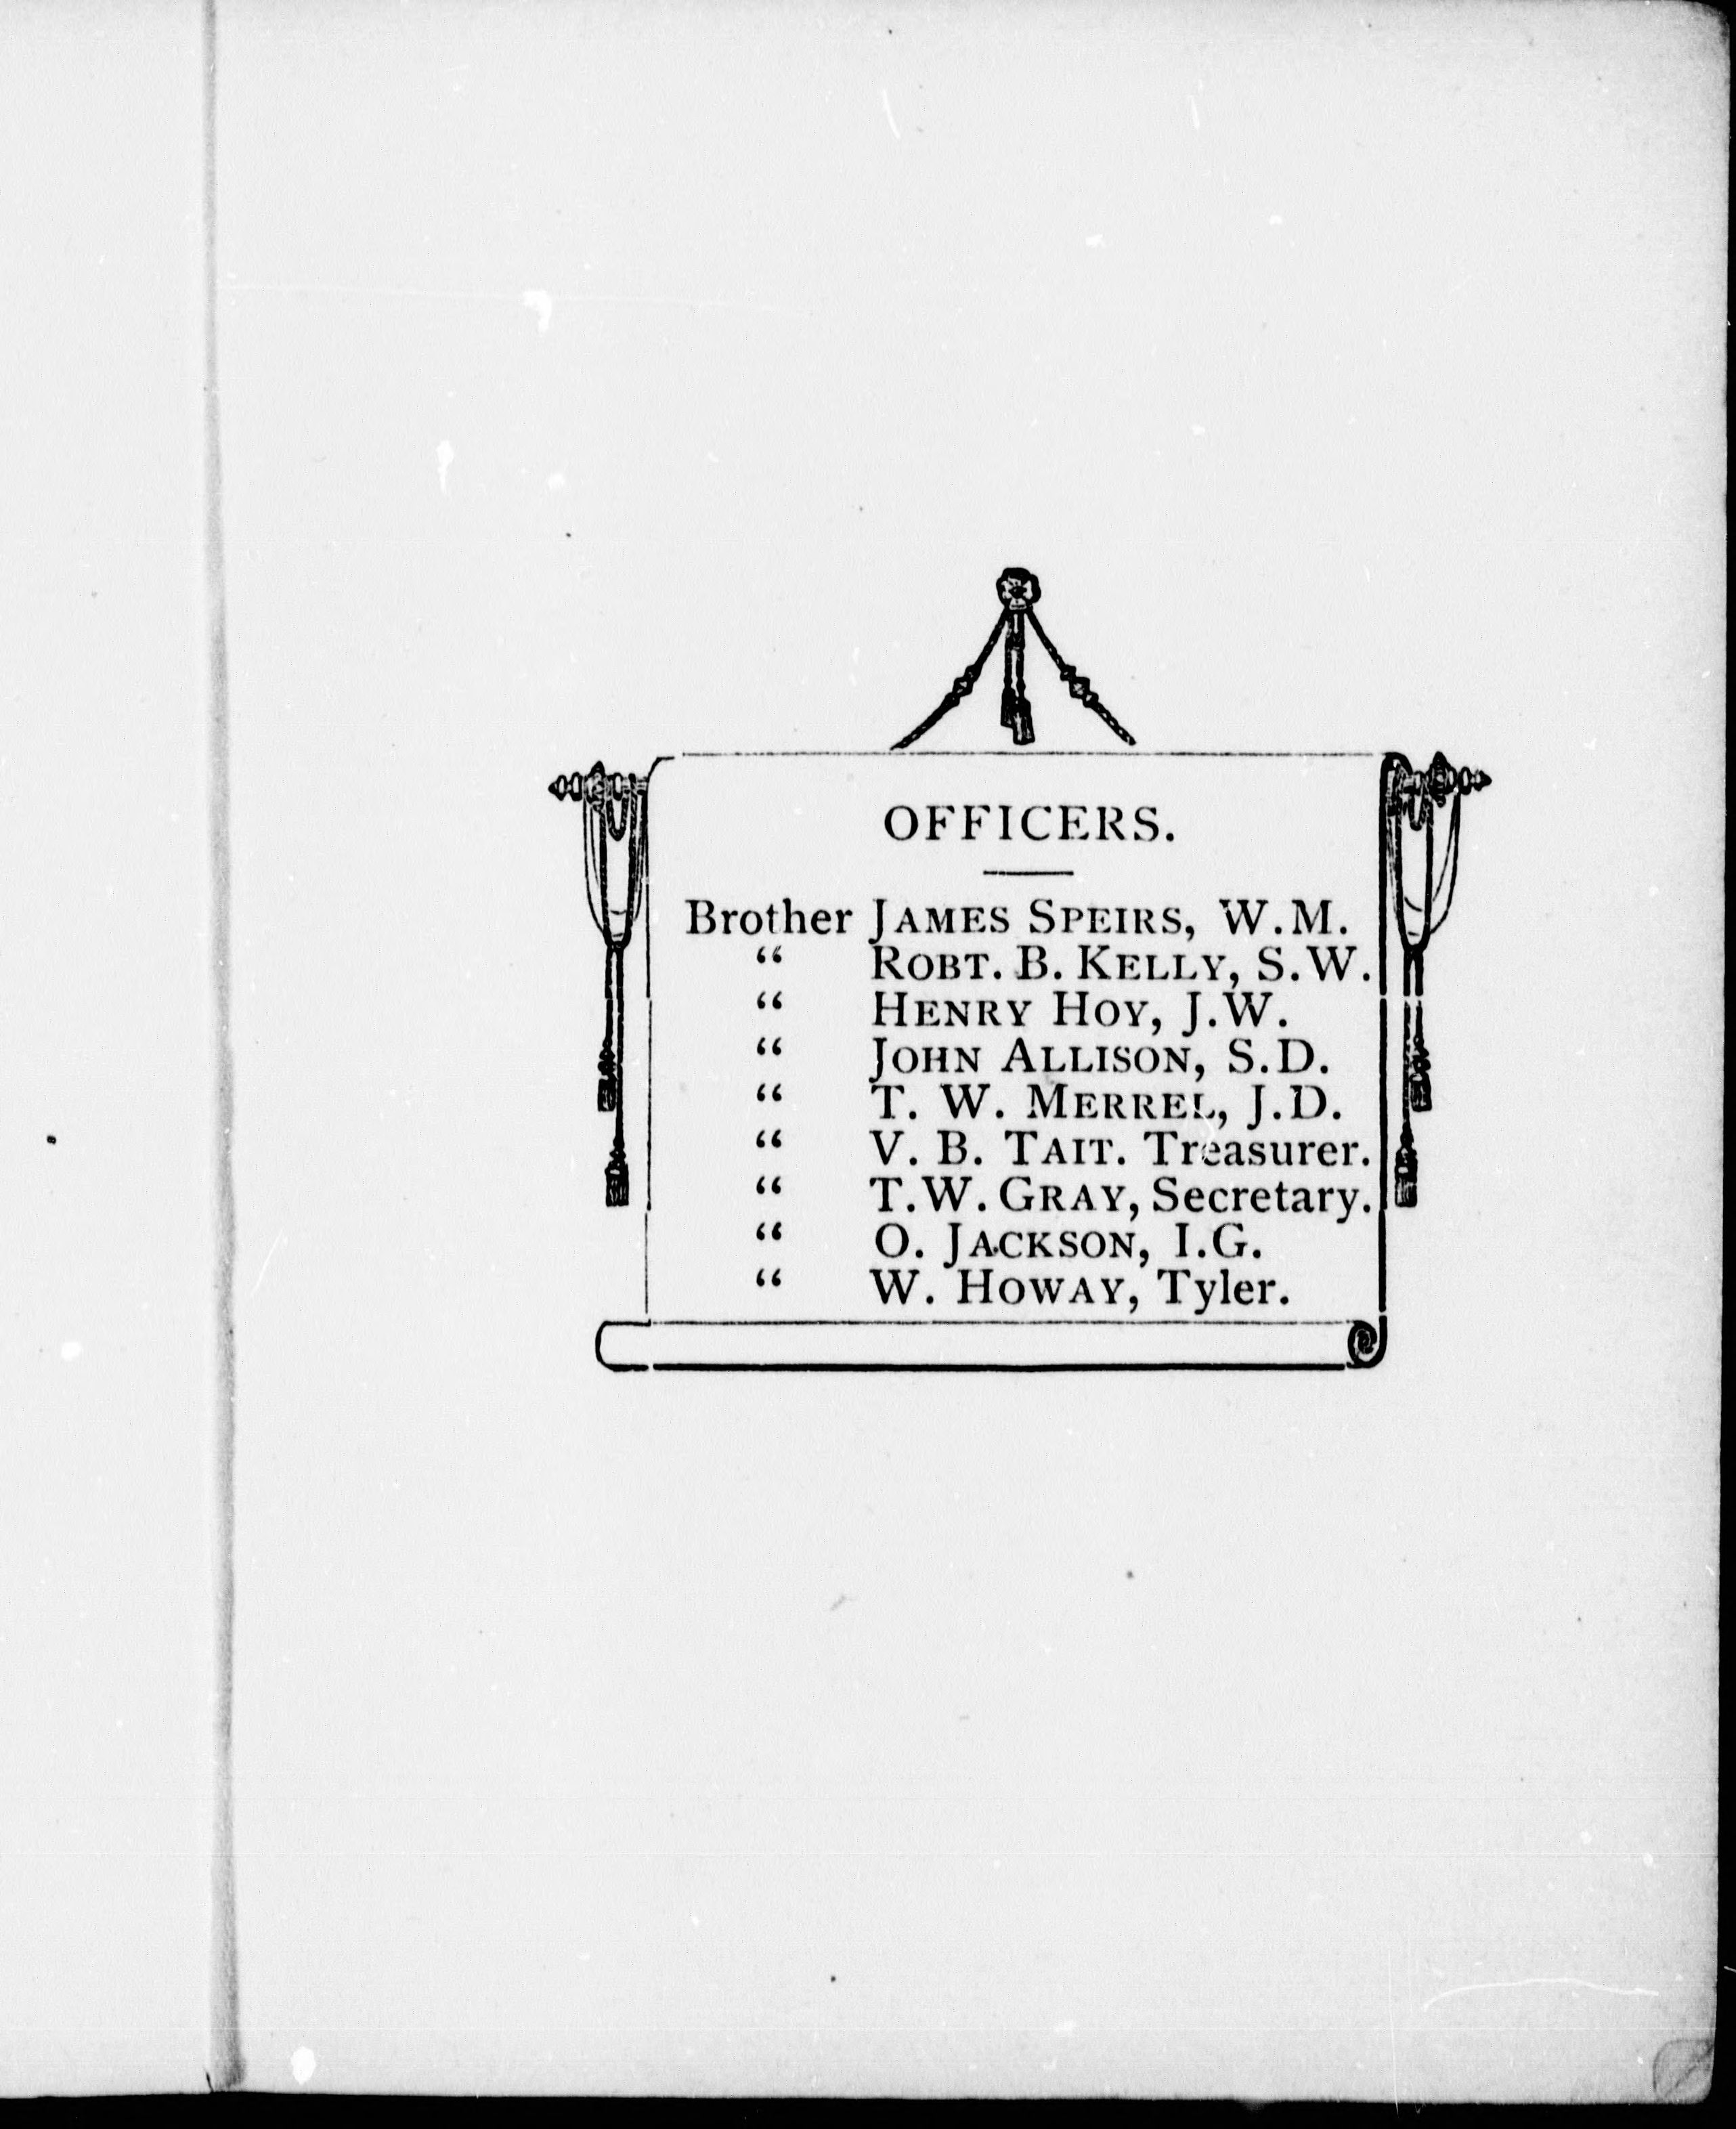 OFFICERS.
Brother JAMES SPEIRS, W.M.
“ ROBT. B. KELLY, S.W.
“ HENRY HOY, J.W.
“ JOHN ALLISON, S.D.
“ T. W. MERREL, J.D.
“ V. B. TAIT. Treasurer.
“ T.W. GRAY, Secretary.
“ O. JACKSON, I.G.
“ W. HOWAY, Tyler.